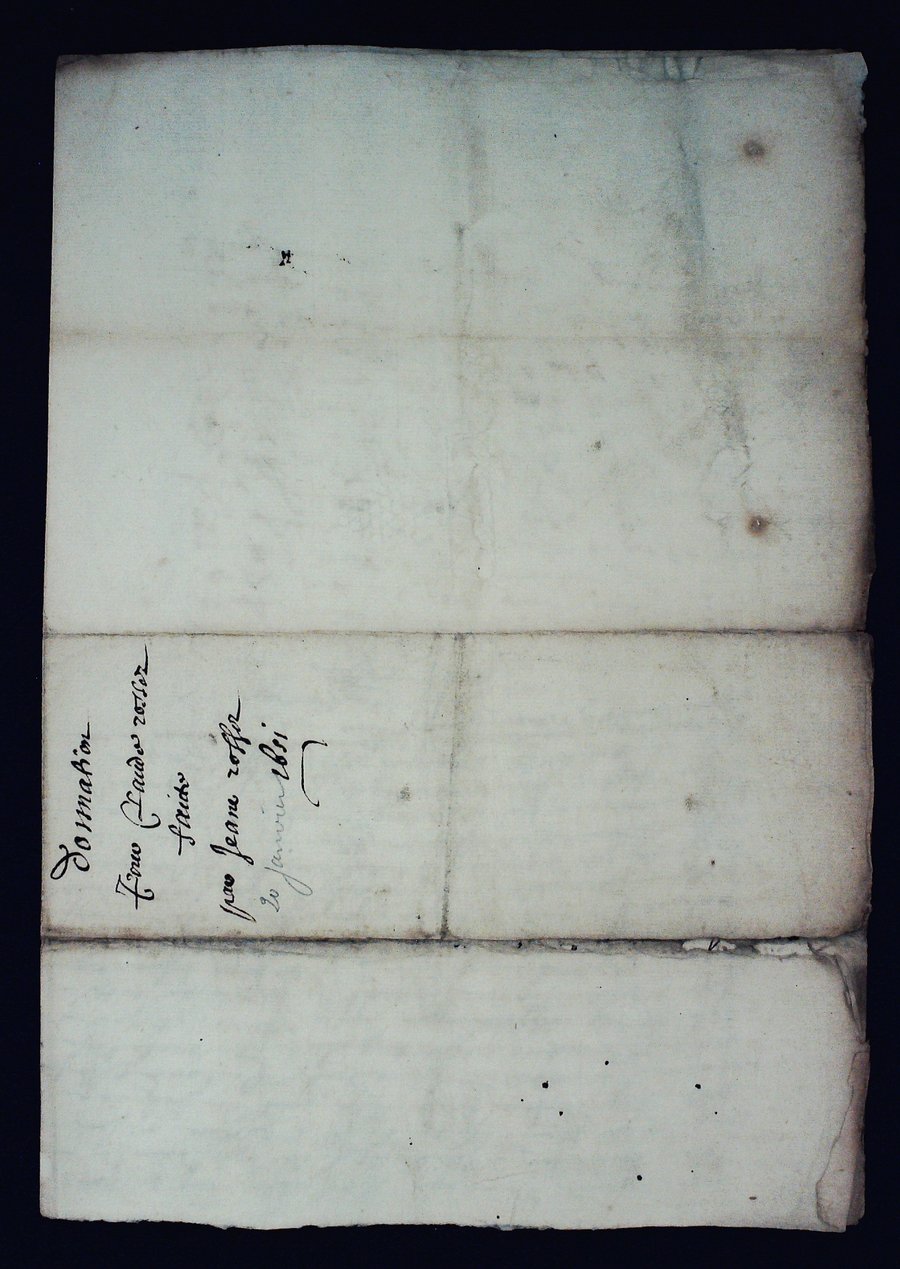 Donnation
Pour Claude rosser
faicte
par Jeane rosser
20 Janvier 1651